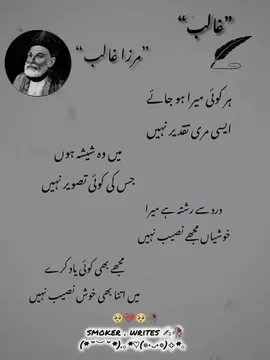 “غالب”
“مرزا غالب”
ہر کوئی میرا ہو جائے
ایسی مری تقدیر نہیں
میں وہ شیشہ ہوں
جس کی کوئی تصویر نہیں
درد سے رشتہ ہے میرا
خوشیاں مجھے نصیب نہیں
مجھے بھی کوئی یاد کرے
میں اتنا بھی خوش نصیب نہیں
SMOKER . WRITES